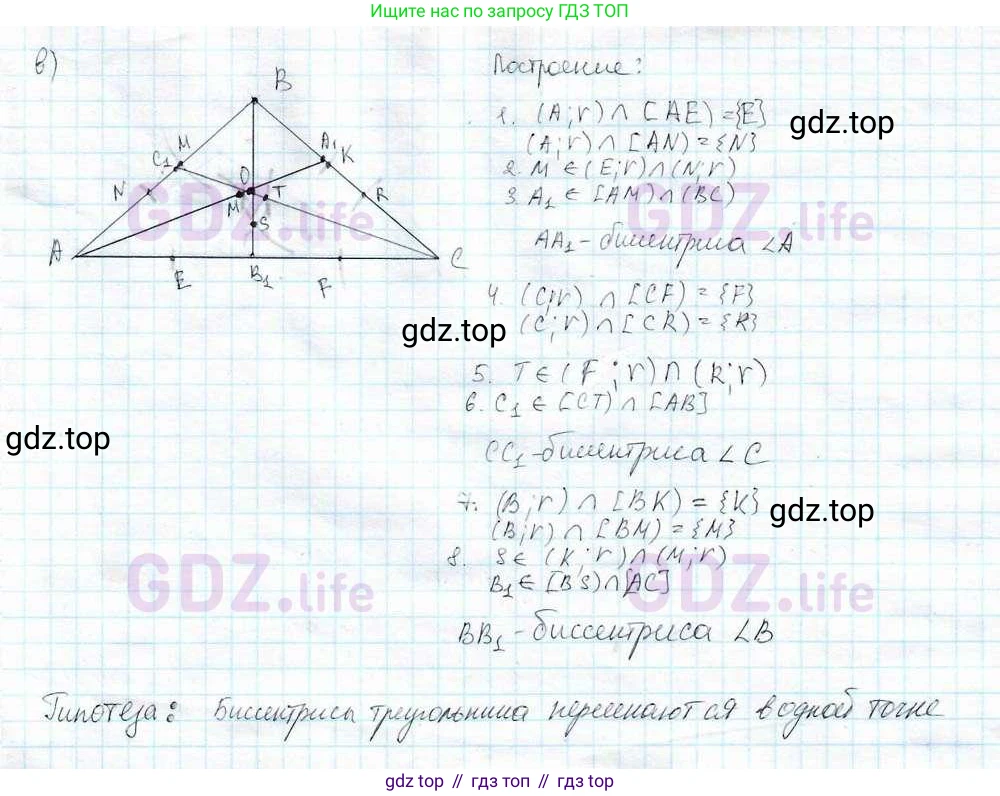 Ищите нас по запросу ГДЗ ТОП
в)
B
C₁ M
A₁ K
N
O
M T
R
S
A
E
B₁
F
C
Построение:
1. (A; r) ∩ [AE) = {E}
(A; r) ∩ [AN) = {N}
2. M ∈ (E; r) ∩ (N; r)
3. A₁ ∈ [AM) ∩ (BC)
AA₁ - биссектриса ∠A
4. (C; r) ∩ [CF) = {F}
(C; r) ∩ [CR) = {R}
5. T ∈ (F; r) ∩ (R; r)
6. C₁ ∈ [CT) ∩ [AB]
CC₁ - биссектриса ∠C
7. (B; r) ∩ [BK) = {K}
(B; r) ∩ [BM) = {M}
8. S ∈ (K; r) ∩ (M; r)
B₁ ∈ [BS) ∩ [AC]
BB₁ - биссектриса ∠B
Гипотеза: Биссектрисы треугольника пересекаются в одной точке
gdz.top
gdz.top
gdz.top
gdz.top
GDZ.life
GDZ.life
GDZ.life
GDZ.life
gdz top // гдз топ // gdz top